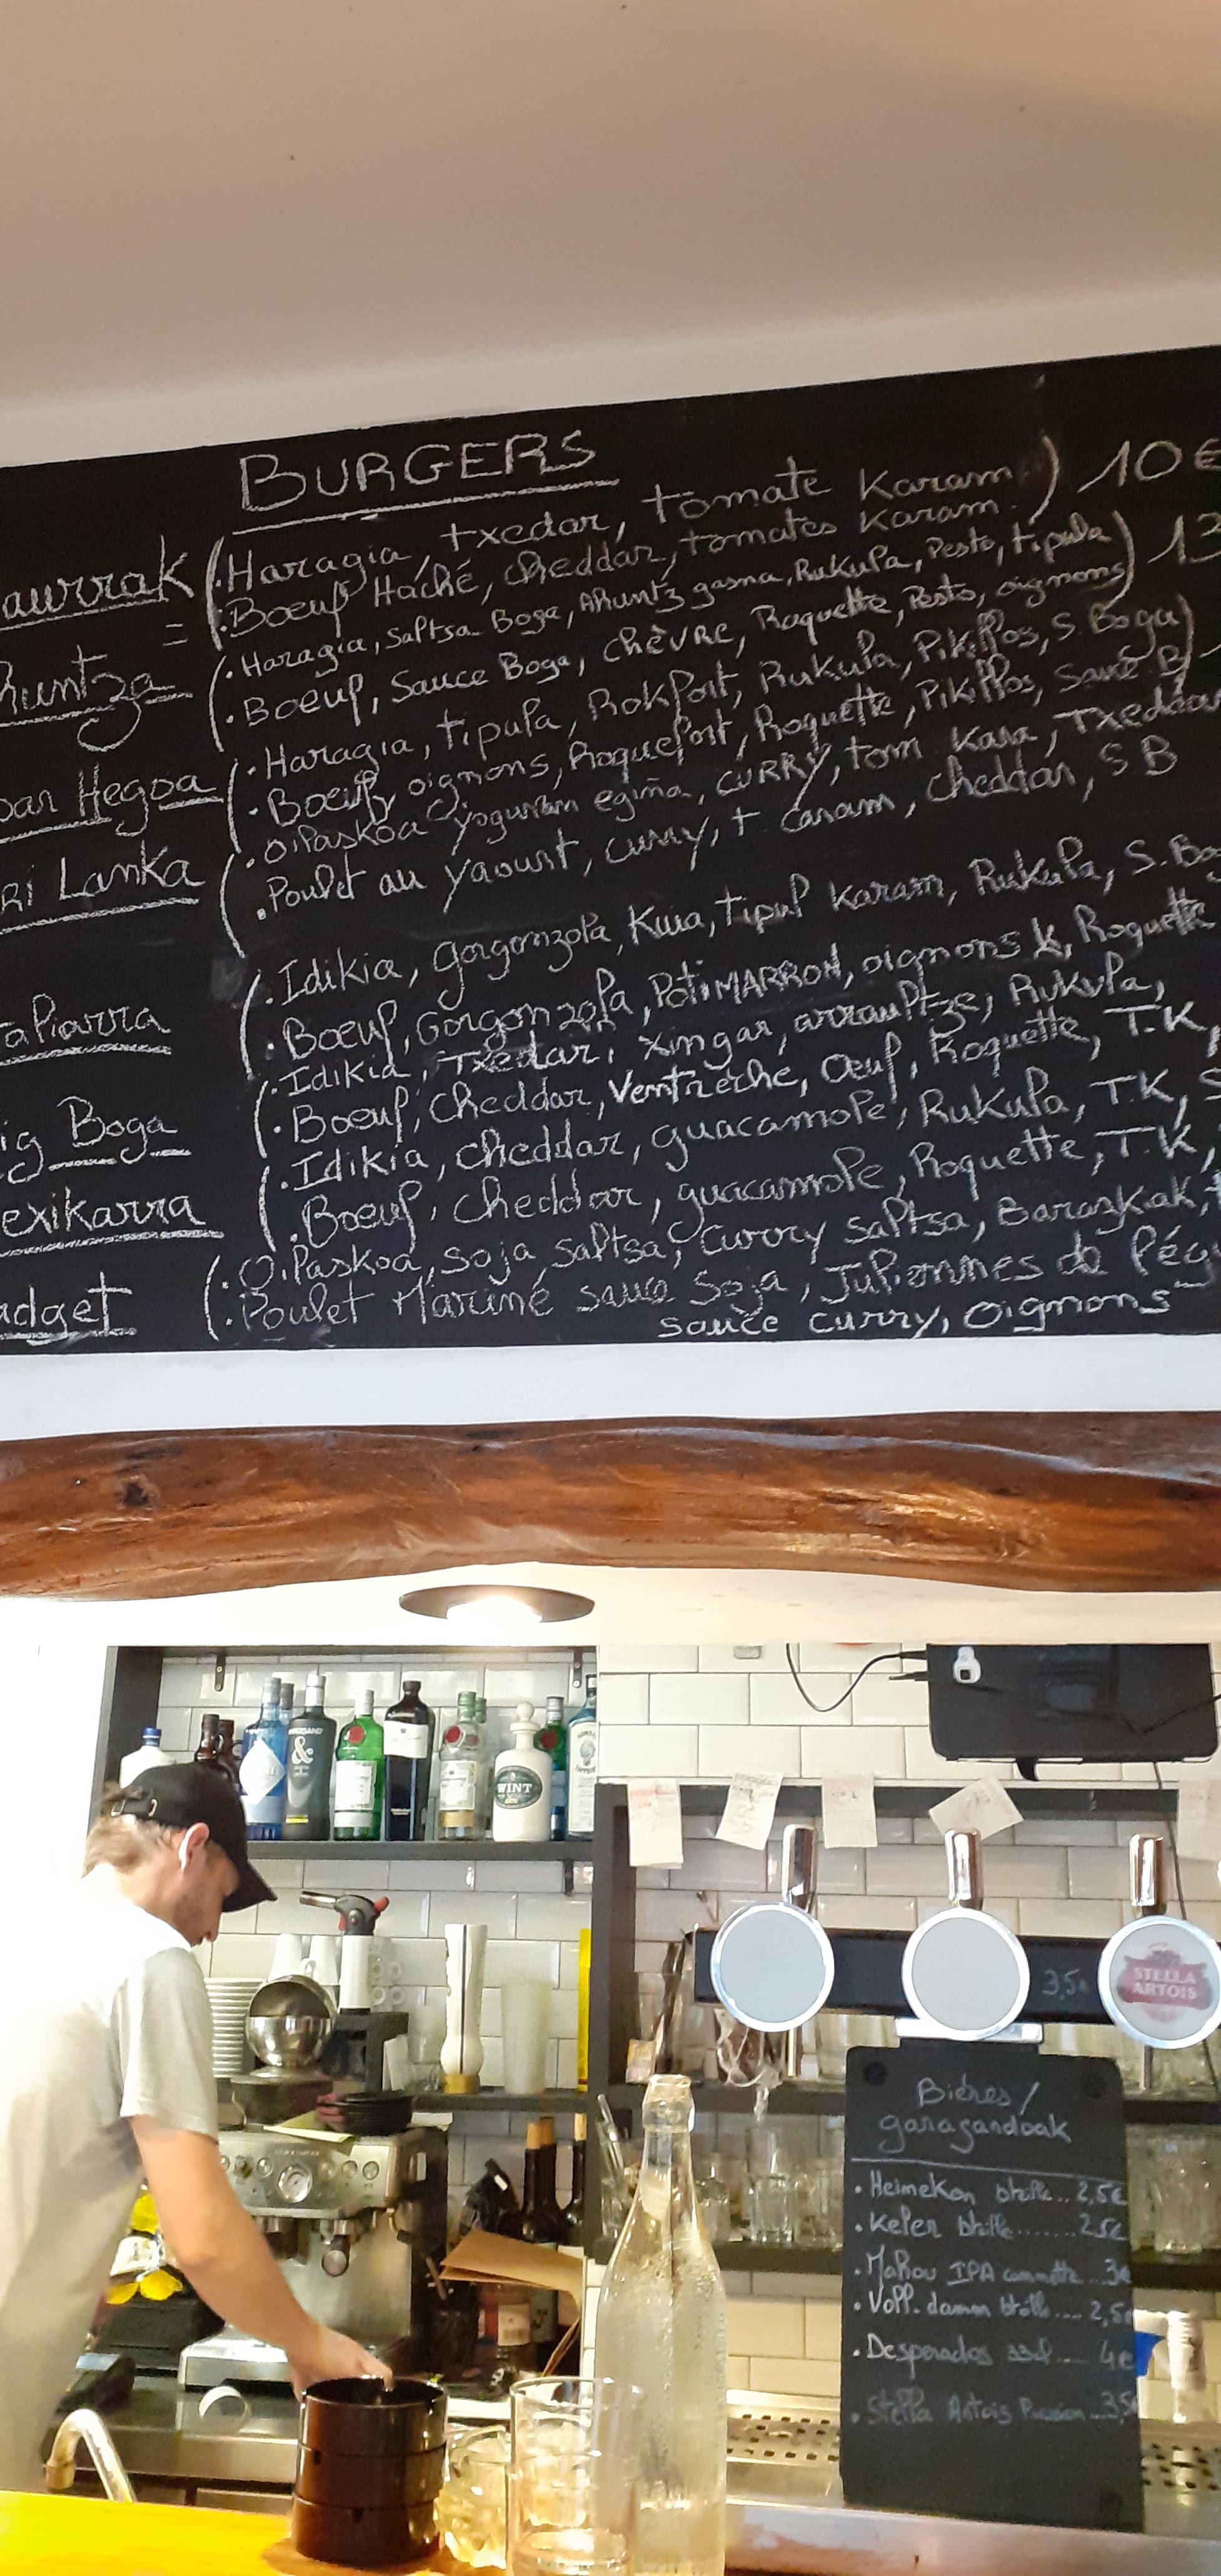 BURGERS
aurrak (. Haragia, txedar, tomate Karam) 10€
. Boeuf Haché, cheddar, tomates Karam.
Runtza (. Haragia, saltsa Boga, ARuntz gasna, Rukula, Pesto, tipula) 13
. Boeuf, Sauce Boga, chèVRe, Roquette, Pesto, oignons)
oar Hegoa (. Haragia, tipula, Rokfort, Rukula, Pikillos, S. Boga)
. Boeuf, oignons, Roquefort, Roquette, Pikillos, Sauce B)
Ri Lanka (. oilaskoa yogurtan egina, CURRY, tom Kara, Txeddar
. Poulet au yaourt, curry, t. caram, cheddar, S B
apiarra (. Idikia, gorgonzola, Kuia, tipul Karam, Rukula, S. Bo
. Boeuf, Gorgonzola, PotiMARRON, oignons K, Roquette
ig Boga (. Idikia, Txedar, xingar, arraultze, Rukula,
. Boeuf, cheddar, Ventrèche, Oeuf, Roquette, T.K,
exikarra (. Idikia, cheddar, guacamole, Rukula, T.K, S
. Boeuf, cheddar, guacamole, Roquette, T.K,
adget (. Oilaskoa, soja saltsa, Curry saltsa, Barazkak,
. Poulet Mariné sauce Soja, Juliennes de lég
sauce curry, oignons
&
WINT
3,5€
STELLA
ARTOIS
Bières/
garagardoak
. Heineken btelle.. 2,5€
. Keler btelle....... 2,5€
. Mahou IPA cannette.. 3€
. Voll-damm btelle.... 2,5€
. Desperados 33cl.... 4€
. Stella Artois Pression... 3,5€